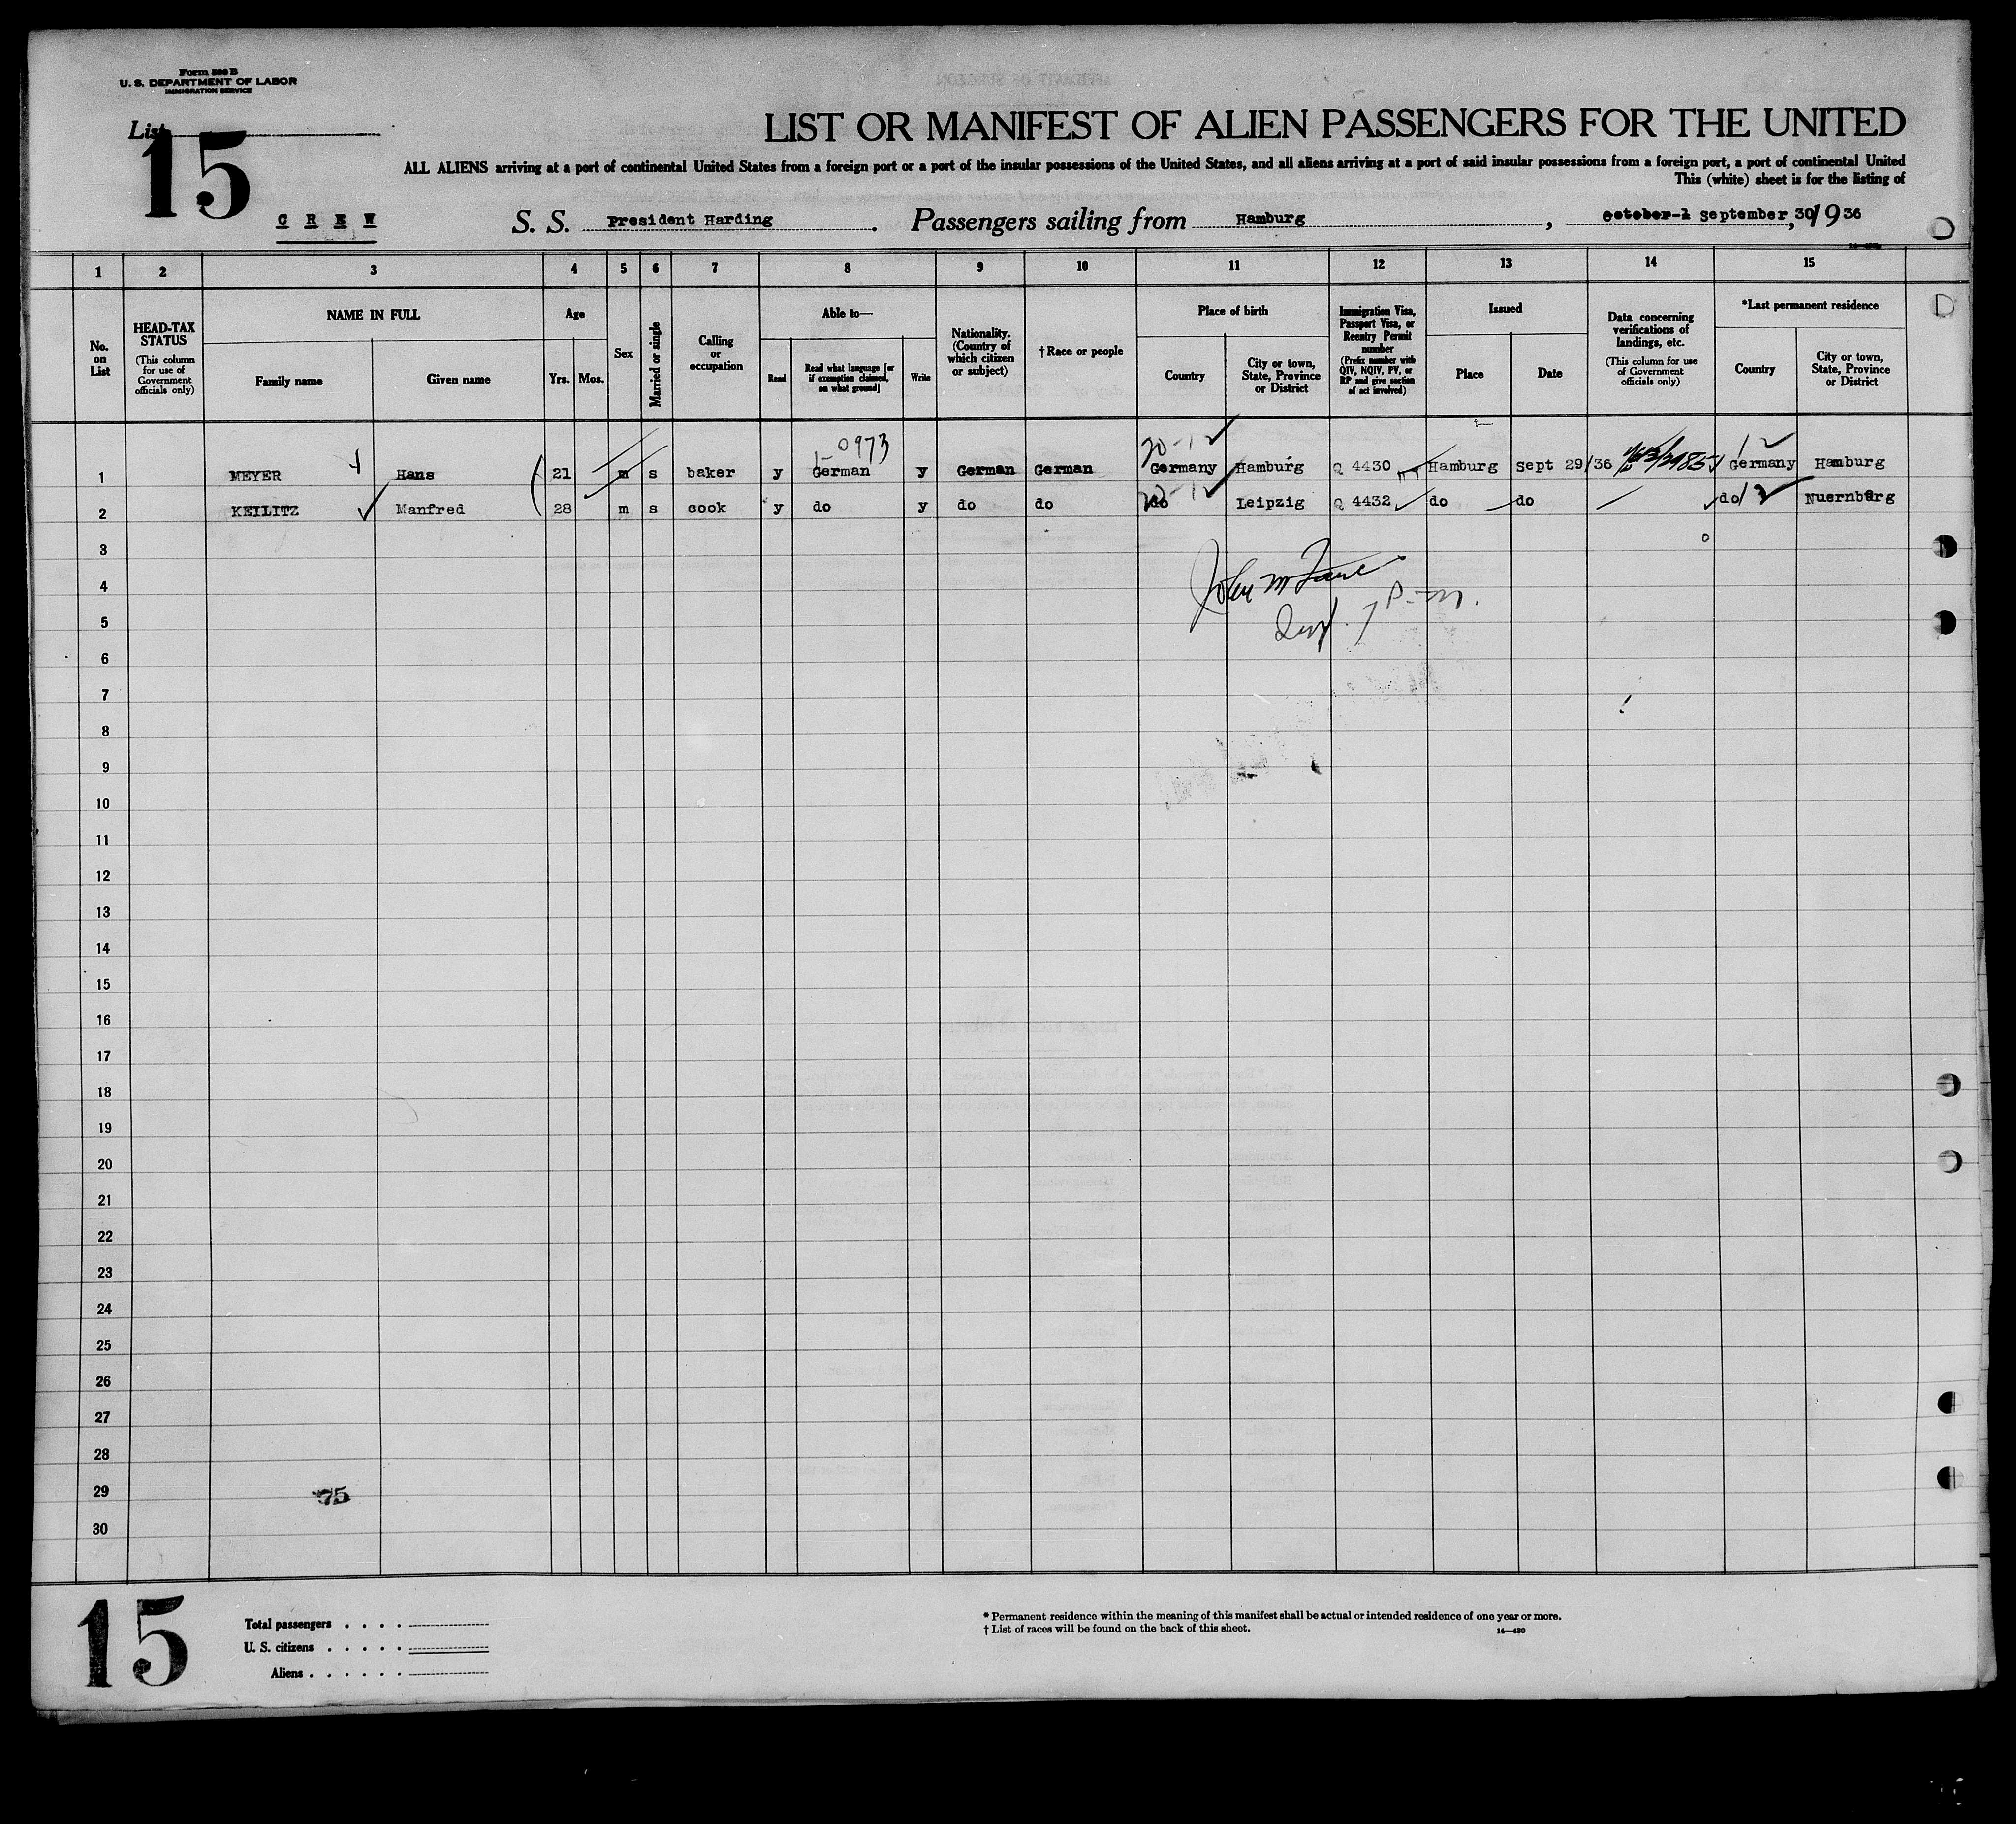 Form 500 B
U. S. DEPARTMENT OF LABOR
IMMIGRATION SERVICE
List
15
LIST OR MANIFEST OF ALIEN PASSENGERS FOR THE UNITED
ALL ALIENS arriving at a port of continental United States from a foreign port or a port of the insular possessions of the United States, and all aliens arriving at a port of said insular possessions from a foreign port, a port of continental United
This (white) sheet is for the listing of
C R E W S. S. President Harding. Passengers sailing from Hamburg, October-1 September, 30, 1936
1 2 3 4 5 6 7 8 9 10 11 12 13 14 15
No. on List
HEAD-TAX STATUS (This column for use of Government officials only)
NAME IN FULL
Family name
Given name
Age
Yrs. Mos.
Sex
Married or single
Calling or occupation
Able to—
Read
Read what language [or if exemption claimed, on what ground]
Write
Nationality. (Country of which citizen or subject)
† Race or people
Place of birth
Country
City or town, State, Province or District
Immigration Visa, Passport Visa, or Reentry Permit number (Prefix number with QIV, NQIV, PV, or RP and give section of act involved)
Issued
Place
Date
Data concerning verifications of landings, etc. (This column for use of Government officials only)
*Last permanent residence
Country
City or town, State, Province or District
0973 20-12 12
1 MEYER Hans 21 m s baker y German y German German Germany Hamburg Q 4430 Hamburg Sept 29/36 Germany Hamburg
2 KEILITZ Manfred 28 m s cook y do y do do do Leipzig Q 4432 do do do Nuernberg
3
4
5
6
7
8
9
10
11
12
13
14
15
16
17
18
19
20
21
22
23
24
25
26
27
28
29 75
30
15
Total passengers . . . .
U. S. citizens . . . . .
Aliens . . . . . .
* Permanent residence within the meaning of this manifest shall be actual or intended residence of one year or more.
† List of races will be found on the back of this sheet. 14—430